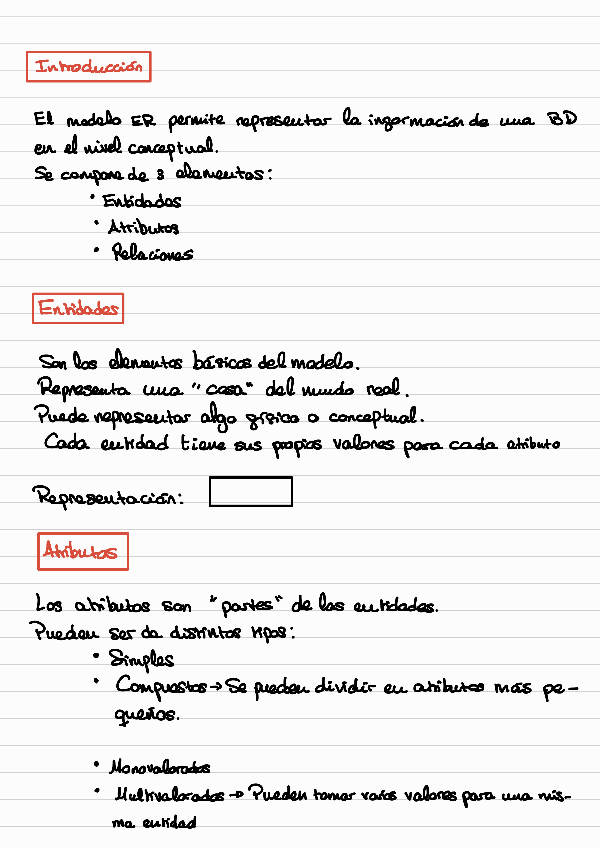 Introducción
El modelo ER permite representar la información de una BD
en el nivel conceptual.
Se compone de 3 elementos:
• Entidades
• Atributos
• Relaciones
Entidades
Son los elementos básicos del modelo.
Representa una "cosa" del mundo real.
Puede representar algo físico o conceptual.
Cada entidad tiene sus propios valores para cada atributo
Representación:
Atributos
Los atributos son "partes" de las entidades.
Pueden ser da distintos tipos:
• Simples
• Compuestos → Se pueden dividir en atributos más pe-
queños.
• Monovalorados
• Multivalorados → Pueden tomar varios valores para una mis-
ma entidad